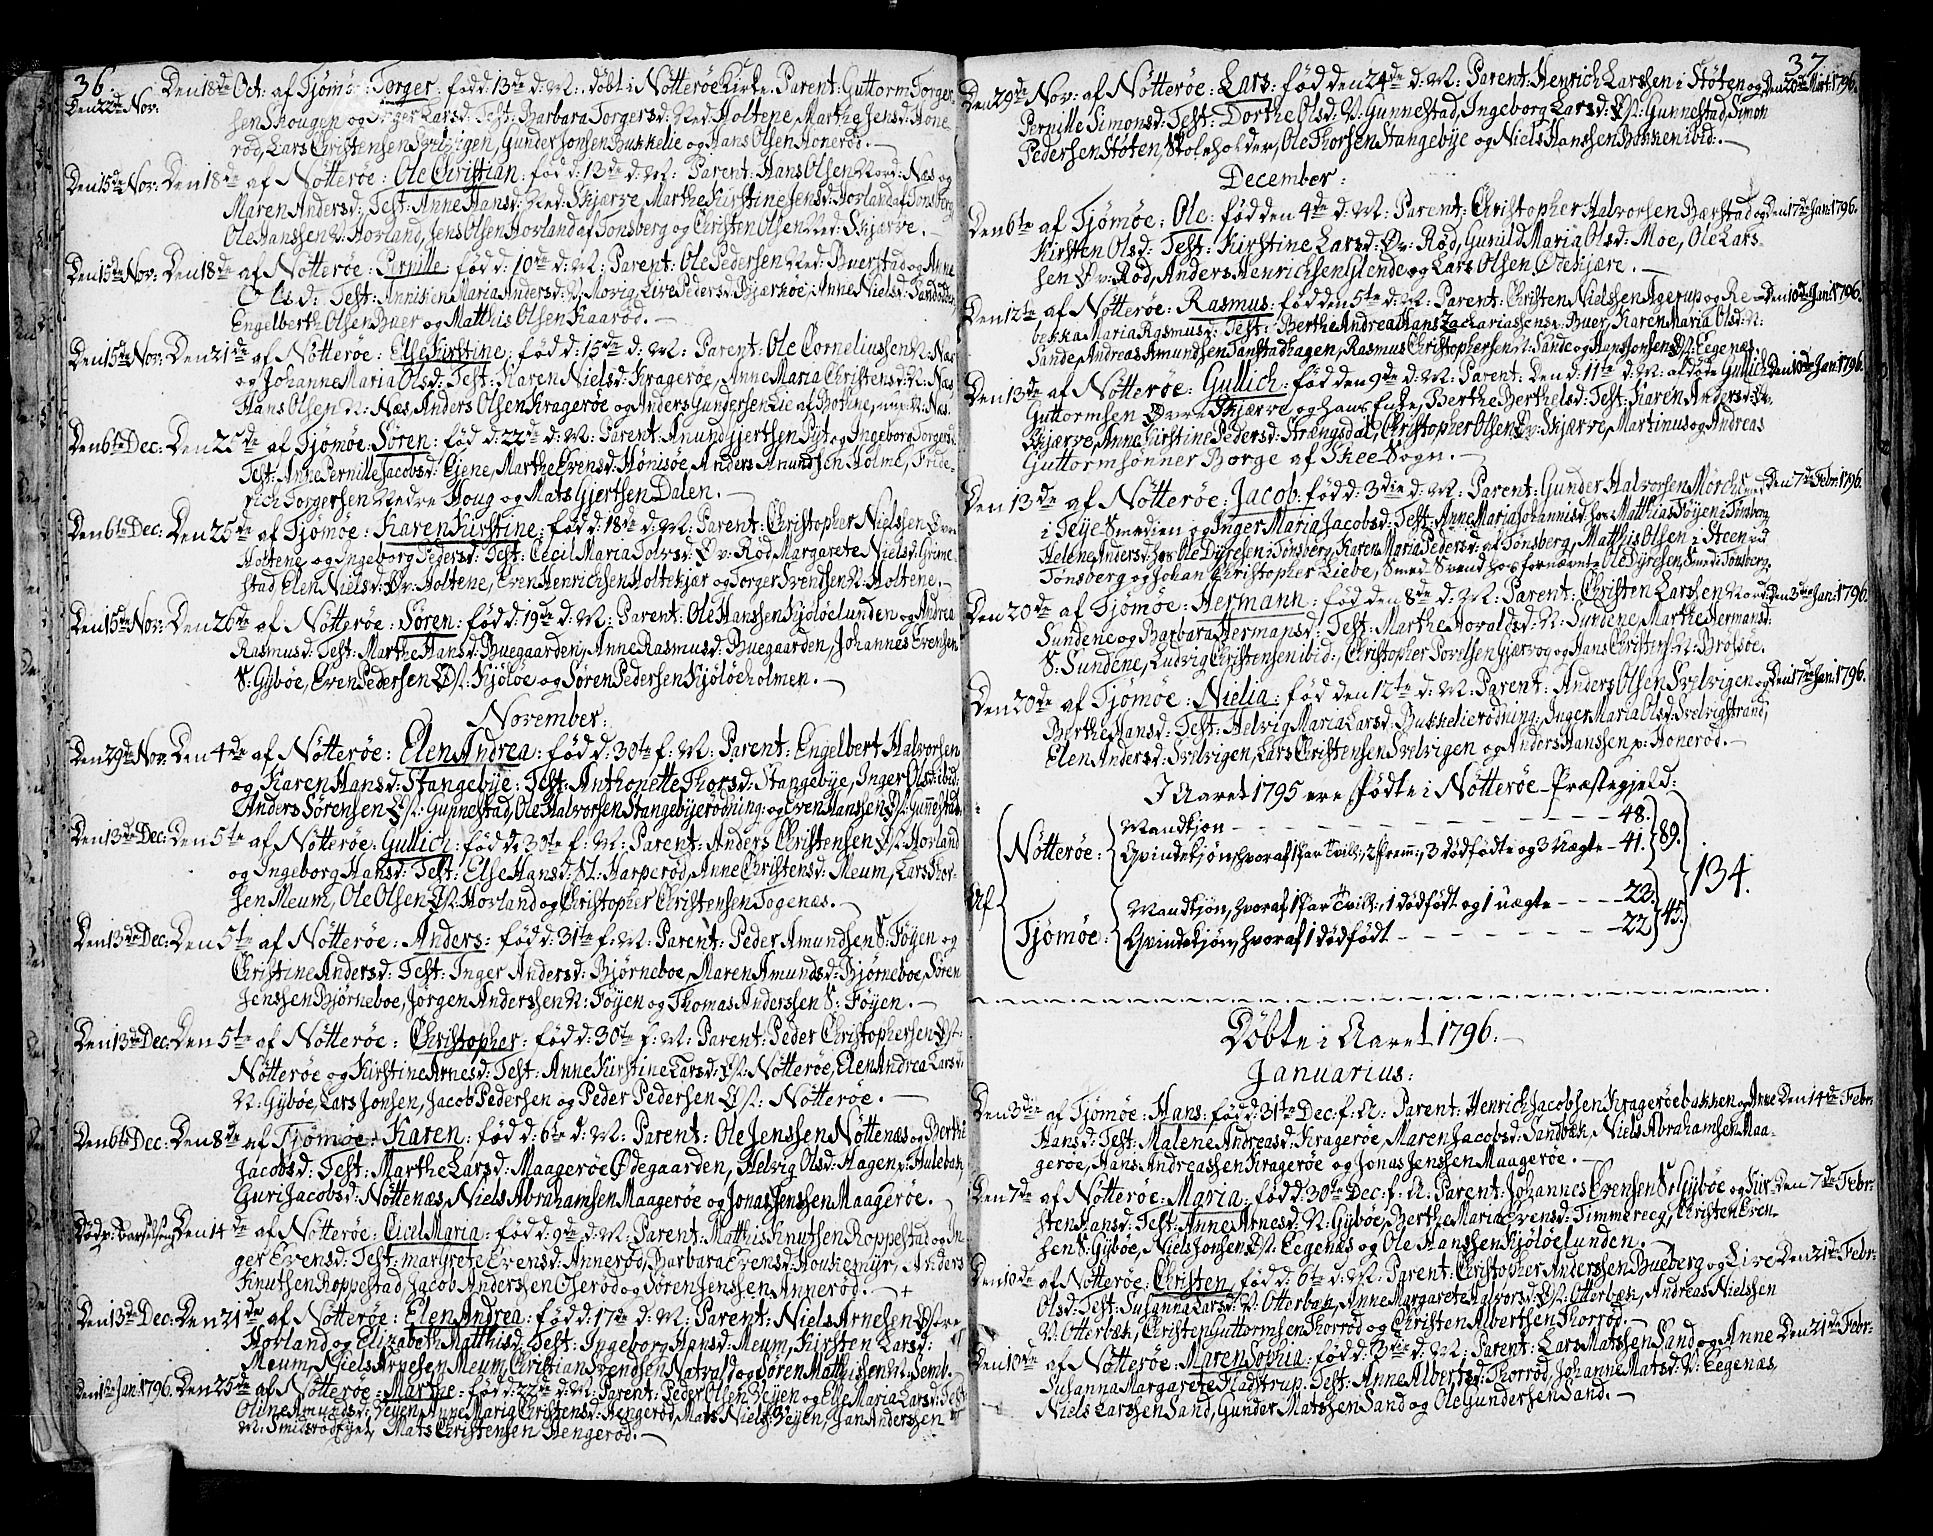 36.
Den 22de Nov: Den 18de Oct: af Tjömö: Torger: föd d: 13de d: M: döbt i Nötterøe Kirke. Parent: Guttorm Torger-
sen Skougen og Torger Larsd: Test: Barbara Torgersd: Ned: Holtene, Marthe Jensd: Hone-
röd, Lars Christensen Svelvigen, Gunder Jonsen Bukkelie og Hans Olsen Honeröd.
Den 15de Nov: Den 18de af Nötteröe: Ole Christian: föd d: 13de d: M: Parent: Hans Olsen Nord: Næs og
Maren Andersd: Test: Anne Hansd: Ned: Skjærre, Marthe Kirstine Jensd: Horland af Tonsberg
Ole Hanssen N: Horland, Jens Olsen Horland af Tonsberg og Christen Olsen Ned: Skjærre.
Den 15de Nov: Den 18de af Nötteröe: Pernille: föd d: 10de d: M: Parent: Ole Pedersen Ned: Buerstad og Anne
Olsd: Test: Anniken Maria Andersd: N: Morig, Live Pedersd: Bjærkøe, Anne Nielsd:
Engelberth Olsen Buer og Matthis Olsen Kaaröd.
Den 15de Nov: Den 21de af Nötteröe: Else Kirstine: föd d: 15de d: M: Parent: Ole Corneliussen N: Næs
og Johanne Maria Olsd: Test: Karen Nielsd: Krageröe, Anne Maria Christensd: N: Næs,
Hans Olsen N: Næs, Anders Olsen Krageröe og Anders Gundersen Lie af Bothne, nu p: N: Næs.
Den 6te Dec: Den 25de af Tjömöe: Sören: föd d: 22de d: M: Parent: Anund Gjertsen Pyt og Ingeborg Torgersd:
Test: Anne Pernille Jacobsd: Ejene, Marthe Evensd: Hönisöe, Anders Anundsen Holme, Fride-
rich Torgersen Nedre Houg og Mats Gjertsen Dalen.
Den 6te Dec: Den 25de af Tjömöe: Karen Kirstine: föd d: 18de d: M: Parent: Christopher Nielssen Övre
Holtene og Ingeborg Pedersd: Test: Cecil Maria Tolvsd: Öv: Röd, Margarete Nielsd: Grime-
stad, Elen Nielsd: Öv: Holtene, Even Henrichsen Holtekjær og Torger Svendsen N: Holtene.
Den 15de Nov: Den 26de af Nötteröe: Sören: föd d: 19de d: M: Parent: Ole Hanssen Kjölöelunden og Andrea
Rasmusd: Test: Marthe Hansd: Buegaarden, Anne Rasmusd: Buegaarden, Johannes Evensen
S: Gyböe, Even Pedersen Öst: Kjölöe og Sören Pedersen Kjölöeholmen.
November:
Den 29de Nov: Den 4de af Nötteröe: Elen Andrea: föd d: 30te f: M: Parent: Engelbert Halvorsen
og Karen Hansd: Stangebije: Test: Anthonette Thorsd: Stangebije, Inger Olsd: ibid:
Anders Sörensen Öst: Gunnestad, Ole Halvorsen Stangebijerödning: og Even Hanssen Öst: Gunnestad.
Den 13de Dec: Den 5te af Nötteröe: Gullich: föd d: 30te f: M: Parent: Anders Christensen Öst: Horland
og Ingeborg Hansd: Test: Else Hansd: N: Harperöd, Anne Christensd: Meum, Lars Thor-
sen Meum, Ole Olsen Öst: Horland og Christopher Christensen Togenæs.
Den 13de Dec: Den 5te af Nötteröe: Anders: föd d: 31te f: M: Parent: Peder Amundsen S: Föyen og
Christine Andersd: Test: Inger Andersd: Björneboe, Maren Amundsd: Bjørneboe, Sören
Jenssen Björneboe, Jörgen Anderssen N: Föyen og Thomas Anderssen S: Föyen.
Den 13de Dec: Den 5te af Nötteröe: Christopher: föd d: 30te f: M: Parent: Peder Christophersen Öst:
Nötteröe og Kirstine Arnesd: Test: Anne Kirstine Larsd: Öst: Nötteröe, Elen Andrea Larsd:
N: Gyböe, Lars Jonsen, Jacob Pedersen og Peder Pedersen Öst: Nötteröe.
Den 6te Dec: Den 8de af Tjömöe: Karen: föd d: 6te d: M: Parent: Ole Jenssen Nöttenæs og Berthe
Jacobsd: Test: Marthe Larsd: Maageröe Ödegaarden, Helvig Olsd: Hagen p: Hulebak,
Guri Jacobsd: Nöttenæs, Niels Abrahamsen Maageröe og Jonas Jenssen Maageröe.
Död p: Barselseng Den 14de af Nötteröe: Cicel Maria: föd d: 9de d: M: Parent: Matthis Knutsen Roppestad og In-
ger Evensd: Test: Margrete Evensd: Anneröd, Barbara Evensd: Houkemyr, Anders
Knutsen Roppestad, Jacob Anderssen Oseröd og Sören Jenssen Anneröd. +
Den 13de Dec: Den 21de af Nötteröe: Elen Andrea: föd d: 17de d: M: Parent: Niels Arnesen Östre
Horland og Elizabeth Matthisd: Test: Ingeborg Hansd: Meum, Kirsten Larsd:
Meum, Niels Arnesen Meum, Christian Svendsen Natvald og Sören Matthissen N: Semb.
Den 1ste Jan: 1796. Den 25de af Nötteröe: Marthe: föd d: 22de d: M: Parent: Peder Olsen Veyen og Else Maria Larsd: Test:
Oline Amundsd: Veyen, Anne Maria Christensd: Hengeröd, Mats Niels: Veyen, Jan Anderssen
N: Smidsrödejet, Mats Christensen Hengeröd.
37.
Den 29de Nov: af Nötteröe: Lars: föd den 24de d: M: Parent: Henrich Larssen i Stöten og Den 20de Mart: 1796.
Pernille Simonsd: Test: Dorthe Olsd: N: Gunnestad, Ingeborg Larsd: Öst: Gunnestad, Simon
Pedersen Stöten, Skoleholder, Ole Thorsen Stangebije og Niels Hanssen Bakken ibid:
December:
Den 6te af Tjömöe: Ole: föd den 4de d: M: Parent: Christopher Halvorsen Bærstad og Den 17de Jan: 1796.
Kirsten Olsd: Test: Kirstine Larsd: Öv: Röd, Gunild Maria Olsd: Moe, Ole Lars-
sen Öv: Röd, Anders Henrichsen Glende og Lars Olsen Ödekjære.
Den 12te af Nötteröe: Rasmus: föd den 5te d: M: Parent: Christen Nielssen Agerup og Re- Den 10de Jan: 1796.
bekka Maria Rasmusd: Test: Berthe Andrea Hans Zachariassens Buer, Karen Maria Olsd: N:
Sande, Andreas Amundsen Tanstadhagen, Rasmus Christophersen N: Sande og Hans Jonsen Öst: Eegenæs.
Den 13de af Nötteröe: Gullich: föd den 9de d: M: Parent: Den d: 11te d: M: afdöde Gullich Den 10de Jan: 1796.
Guttormsen Övre Skjærre, og hans Enke, Berthe Berthelsd: Test: Karen Andersd: Öv:
Skjærre, Anne Kirstine Pedersd: Strængsdal, Christopher Olsen Öv: Skjærre, Martinus og Andreas
Guttormsönner Borge af Skee-Sogn.
Den 13de af Nötteröe: Jacob: föd d: 3die d: M: Parent: Gunder Halvorsen Mörch Den 7de Febr: 1796.
i Teije-Smedien og Inger Maria Jacobsd: Test: Anne Maria Johannisd: hos Matthias Föyen i Tönsberg,
Helene Andersd: hos Ole Dijresen i Tönsberg, Karen Maria Pedersd: af Tönsberg, Matthis Olsen i Steen ved
Tönsberg og Johan Christopher Liebe, Smed-Svend hos fornævnte Ole Dyresen, Smed i Tönsberg.
Den 20de af Tjömöe: Hermann: föd den 8de d: M: Parent: Christen Larssen Nord: Den 3die Jan: 1796.
Sundene og Barbara Hermansd: Test: Marthe Horaldsd: N: Sundene, Marthe Hermansd:
S: Sundene, Ludvig Christensen ibid:, Christopher Povelsen Gjærvog og Hans Christens: N: Brötsöe.
Den 20de af Tjömöe: Nielia: föd den 12te d: M: Parent: Anders Olsen Svelvigen og Den 17de Jan: 1796.
Berthe Hansd: Test: Helvig Maria Larsd: Bukkelierödning, Inger Maria Olsd: Svelvigstrand,
Elen Andersd: Svelvigen, Lars Christensen Svelvigen og Anders Hanssen p: Honeröd.
I Aaret 1795 ere Födte i Nötteröe-Præstegjeld:
Af
Nötteröe: Mandkjön - - - 48.
Qvindekjön, hvoraf 1 Par Tvill:, 2 fremm:, 3 dödfödte og 3 Uægte - 41. 89.
134.
Mandkjön, hvoraf 1 Par Tvill:, 1 dödfödt og 1 uægte - - - 23.
Tjömöe: Qvindekjön, hvoraf 1 dödfödt - - - 22. 45.
Döbte i Aaret 1796.
Januarius:
Den 3die af Tjömöe: Hans: föd d: 31te Dec: f: A: Parent: Henrich Jacobsen Krageröebakken og Anne Den 14de Febr:
Hansd: Test: Malene Andreasd: Krageröe, Maren Jacobsd: Sandbæk, Niels Abrahamsen Maa-
geröe, Hans Andreassen Krageröe og Jonas Jenssen Maageröe.
Den 7de af Nötteröe: Maria: föd d: 30te Dec: f: A: Parent: Johannes Evensen S: Gyböe og Kir- Den 7de Febr:
sten Hansd: Test: Anne Arnesd: N: Gyböe, Berthe Maria Evensd: Timmereeg, Christen Even-
sen S: Gyböe, Niels Jonsen Öst: Eegenæs og Ole Hanssen Kjölöelunden.
Den 10de af Nötteröe: Christen: föd d: 6te d: M: Parent: Christopher Anderssen Bueberg og Live Den 21de Febr:
Olsd: Test: Susanna Larsd: N: Otterbæk, Anne Margarete Halvorsd: Öst: Otterbæk, Andreas Nielssen
N: Otterbæk, Christen Guttormsen Thorröd og Christen Albertsen Thorröd.
Den 10de af Nötteröe: Maren Sophia: föd d: 3die d: M: Parent: Lars Matssen Sand og Anne Den 21de Febr:
Susanna Margarete Fladstrup. Test: Anne Albertsd: Thorröd, Johanne Matsd: N: Eegenæs,
Niels Larssen Sand, Gunder Matssen Sand og Ole Gundersen Sand.